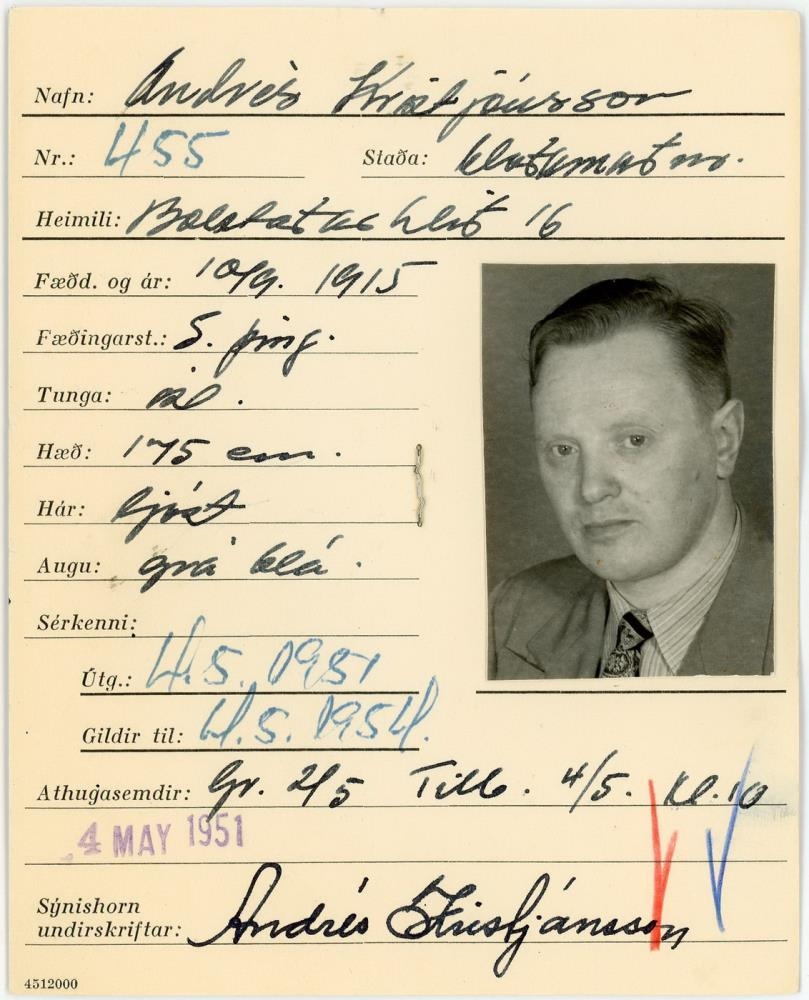 Nafn: Andrés Kristjánsson
Nr.: 455 Staða: blaðamaður.
Heimili: Bólstaðarhlíð 16
Fæðd. og ár: 10/9. 1915
Fæðingarst.: S. þing.
Tunga: ísl.
Hæð: 175 cm.
Hár: ljóst
Augu: grá blá.
Sérkenni:
Útg.: 4.5. 1951
Gildir til: 4.5. 1954.
Athugasemdir: Gr. 2/5 Tilb. 4/5. kl. 10
4 MAY 1951
Sýnishorn
undirskriftar: Andrés Kristjánsson
4512000